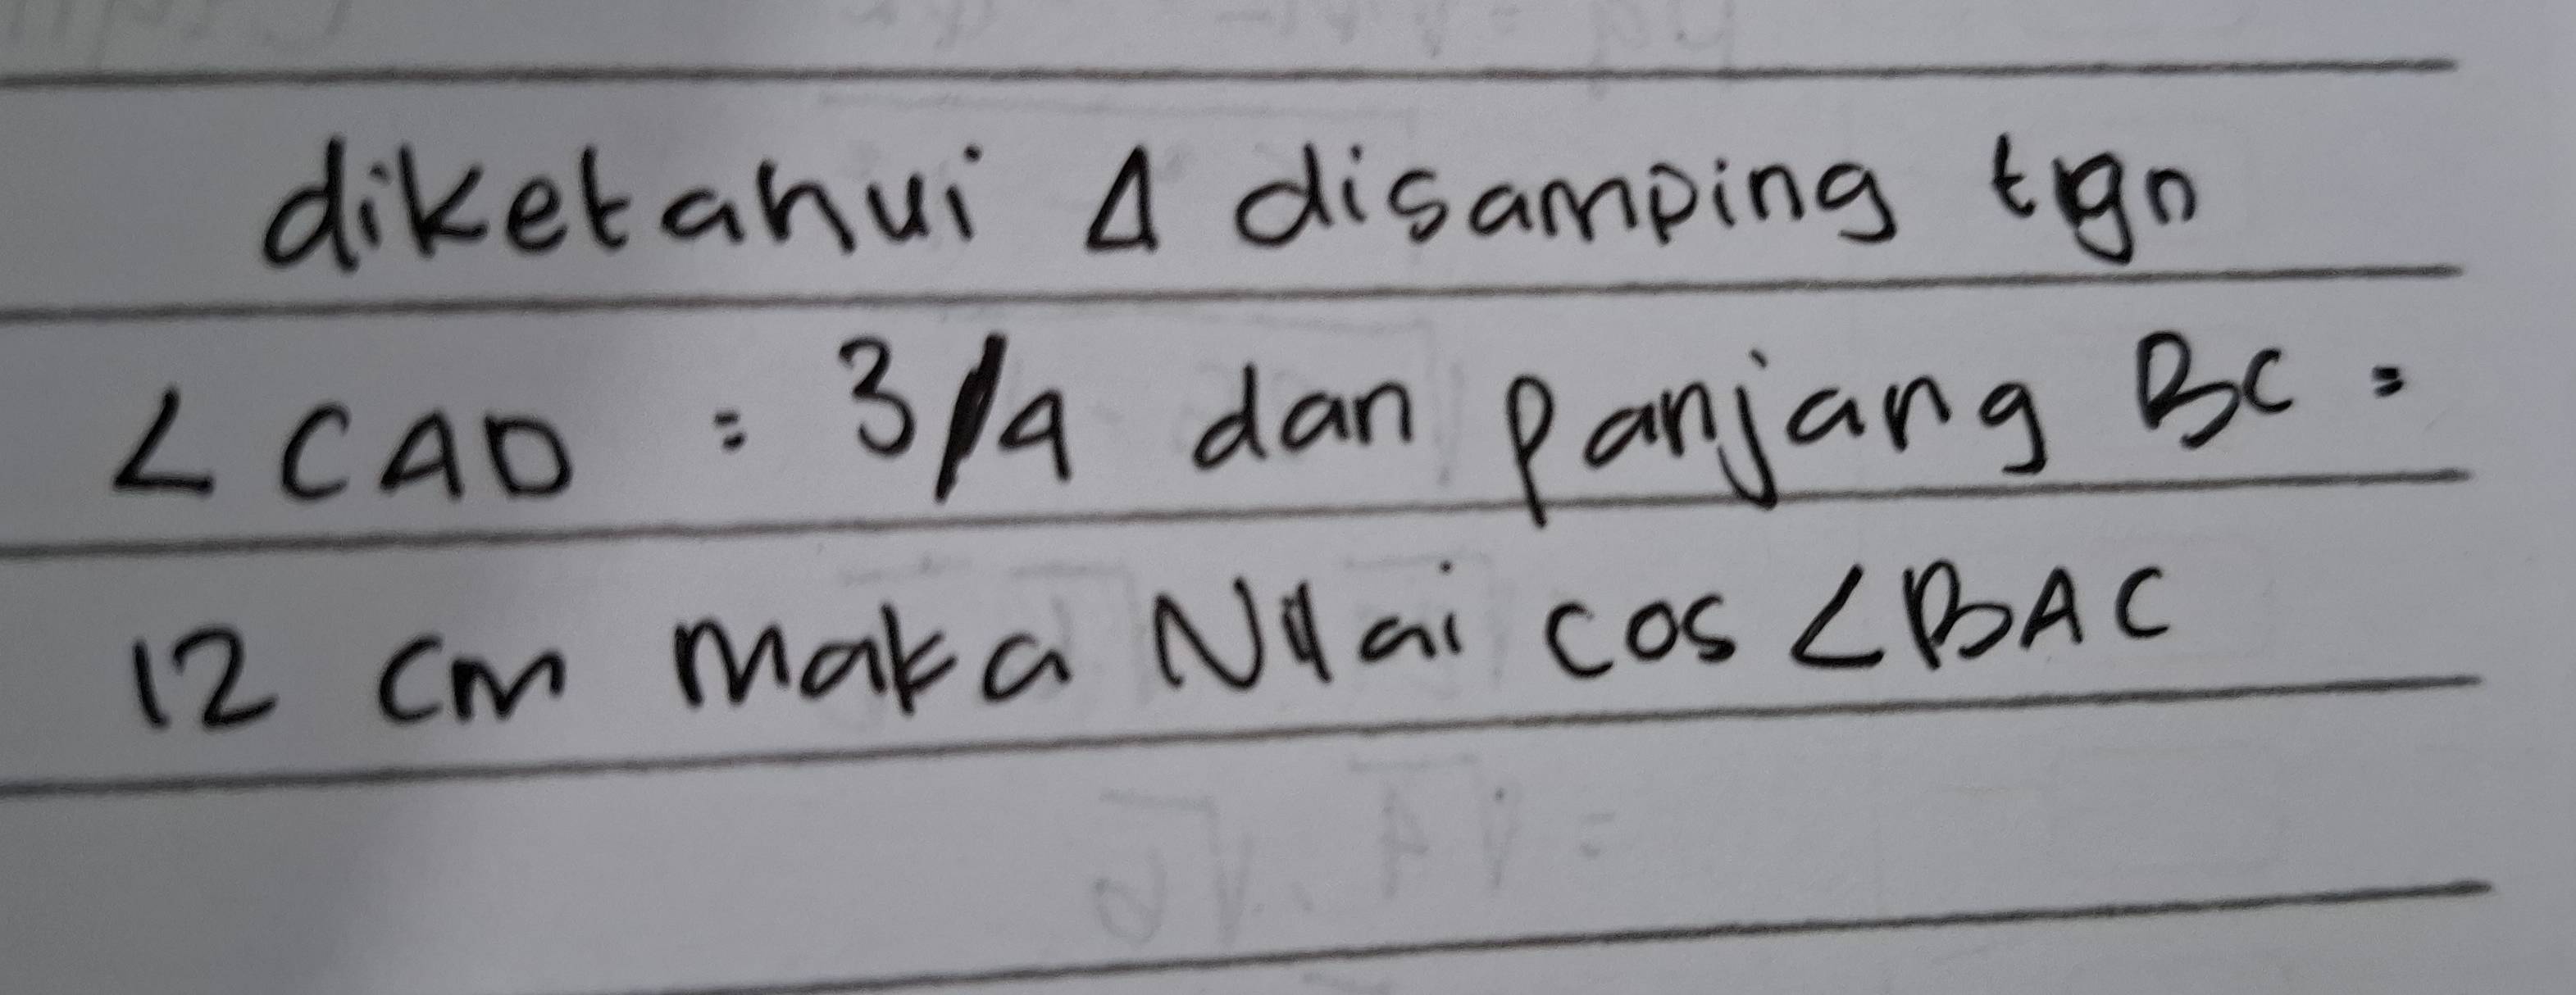 diketahui Δ disamping tgn
∠ CAD = 3/4 dan panjang BC =
12 cm maka Nilai cos ∠BAC